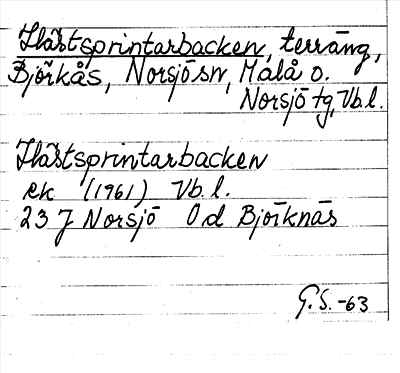 Hästsprintarbacken, terräng,
Björkås, Norsjö sn, Malå o.
Norsjö tg, Vb.l.
Hästsprintarbacken
ek (1961) Vb.l.
23 J Norsjö 0d Björknäs
G.S. -63